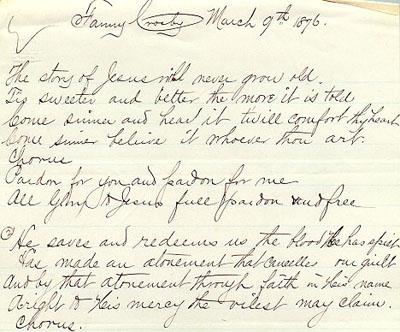 Fanny Crosby March 9th 1876.
The story of Jesus will never grow old.
Tis sweeter and better the more it is told
Come sinner and hear it twill comfort thy heart
Come sinner believe it whoever thou art.
Chorus
Pardon for you and pardon for me
All Glory to Jesus full pardon and free
2 He saves and redeems us the blood He has spilt
Has made an atonement that cancelles our guilt
And by that atonement through faith in His name
A right to His mercy the vilest may claim.
Chorus.